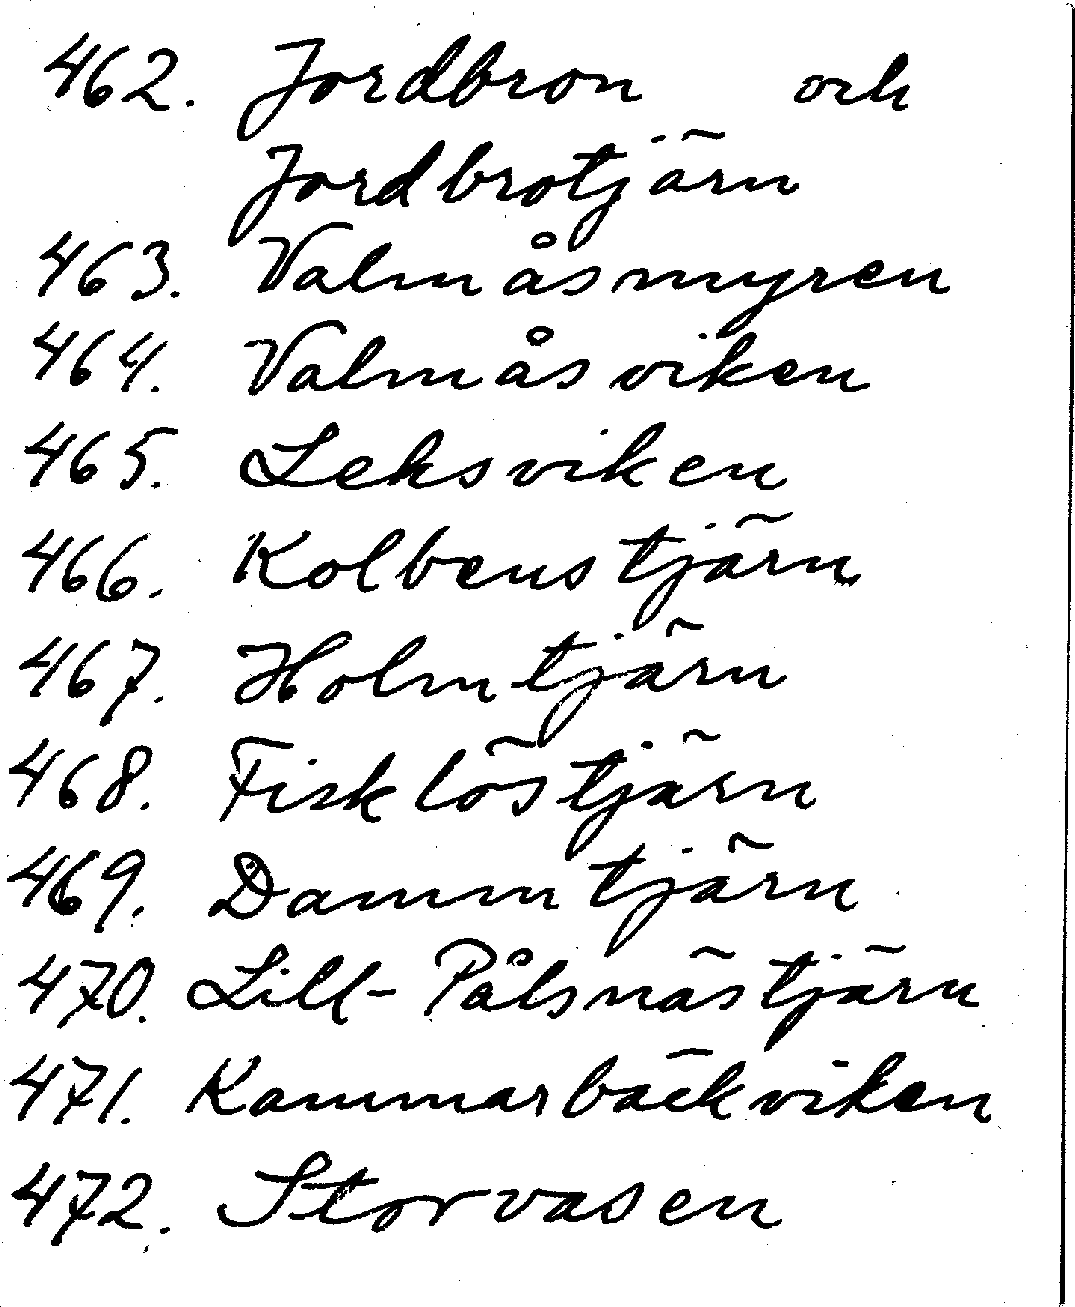 462. Jordbron och
Jordbrotjärn
463. Valmåsmyren
464. Valmåsviken
465. Leksviken
466. Kolbenstjärn
467. Holmtjärn
468. Fisklöstjärn
469. Dammtjärn
470. Lill-Pålsnästjärn
471. Kammarbäckviken
472. Storvasen